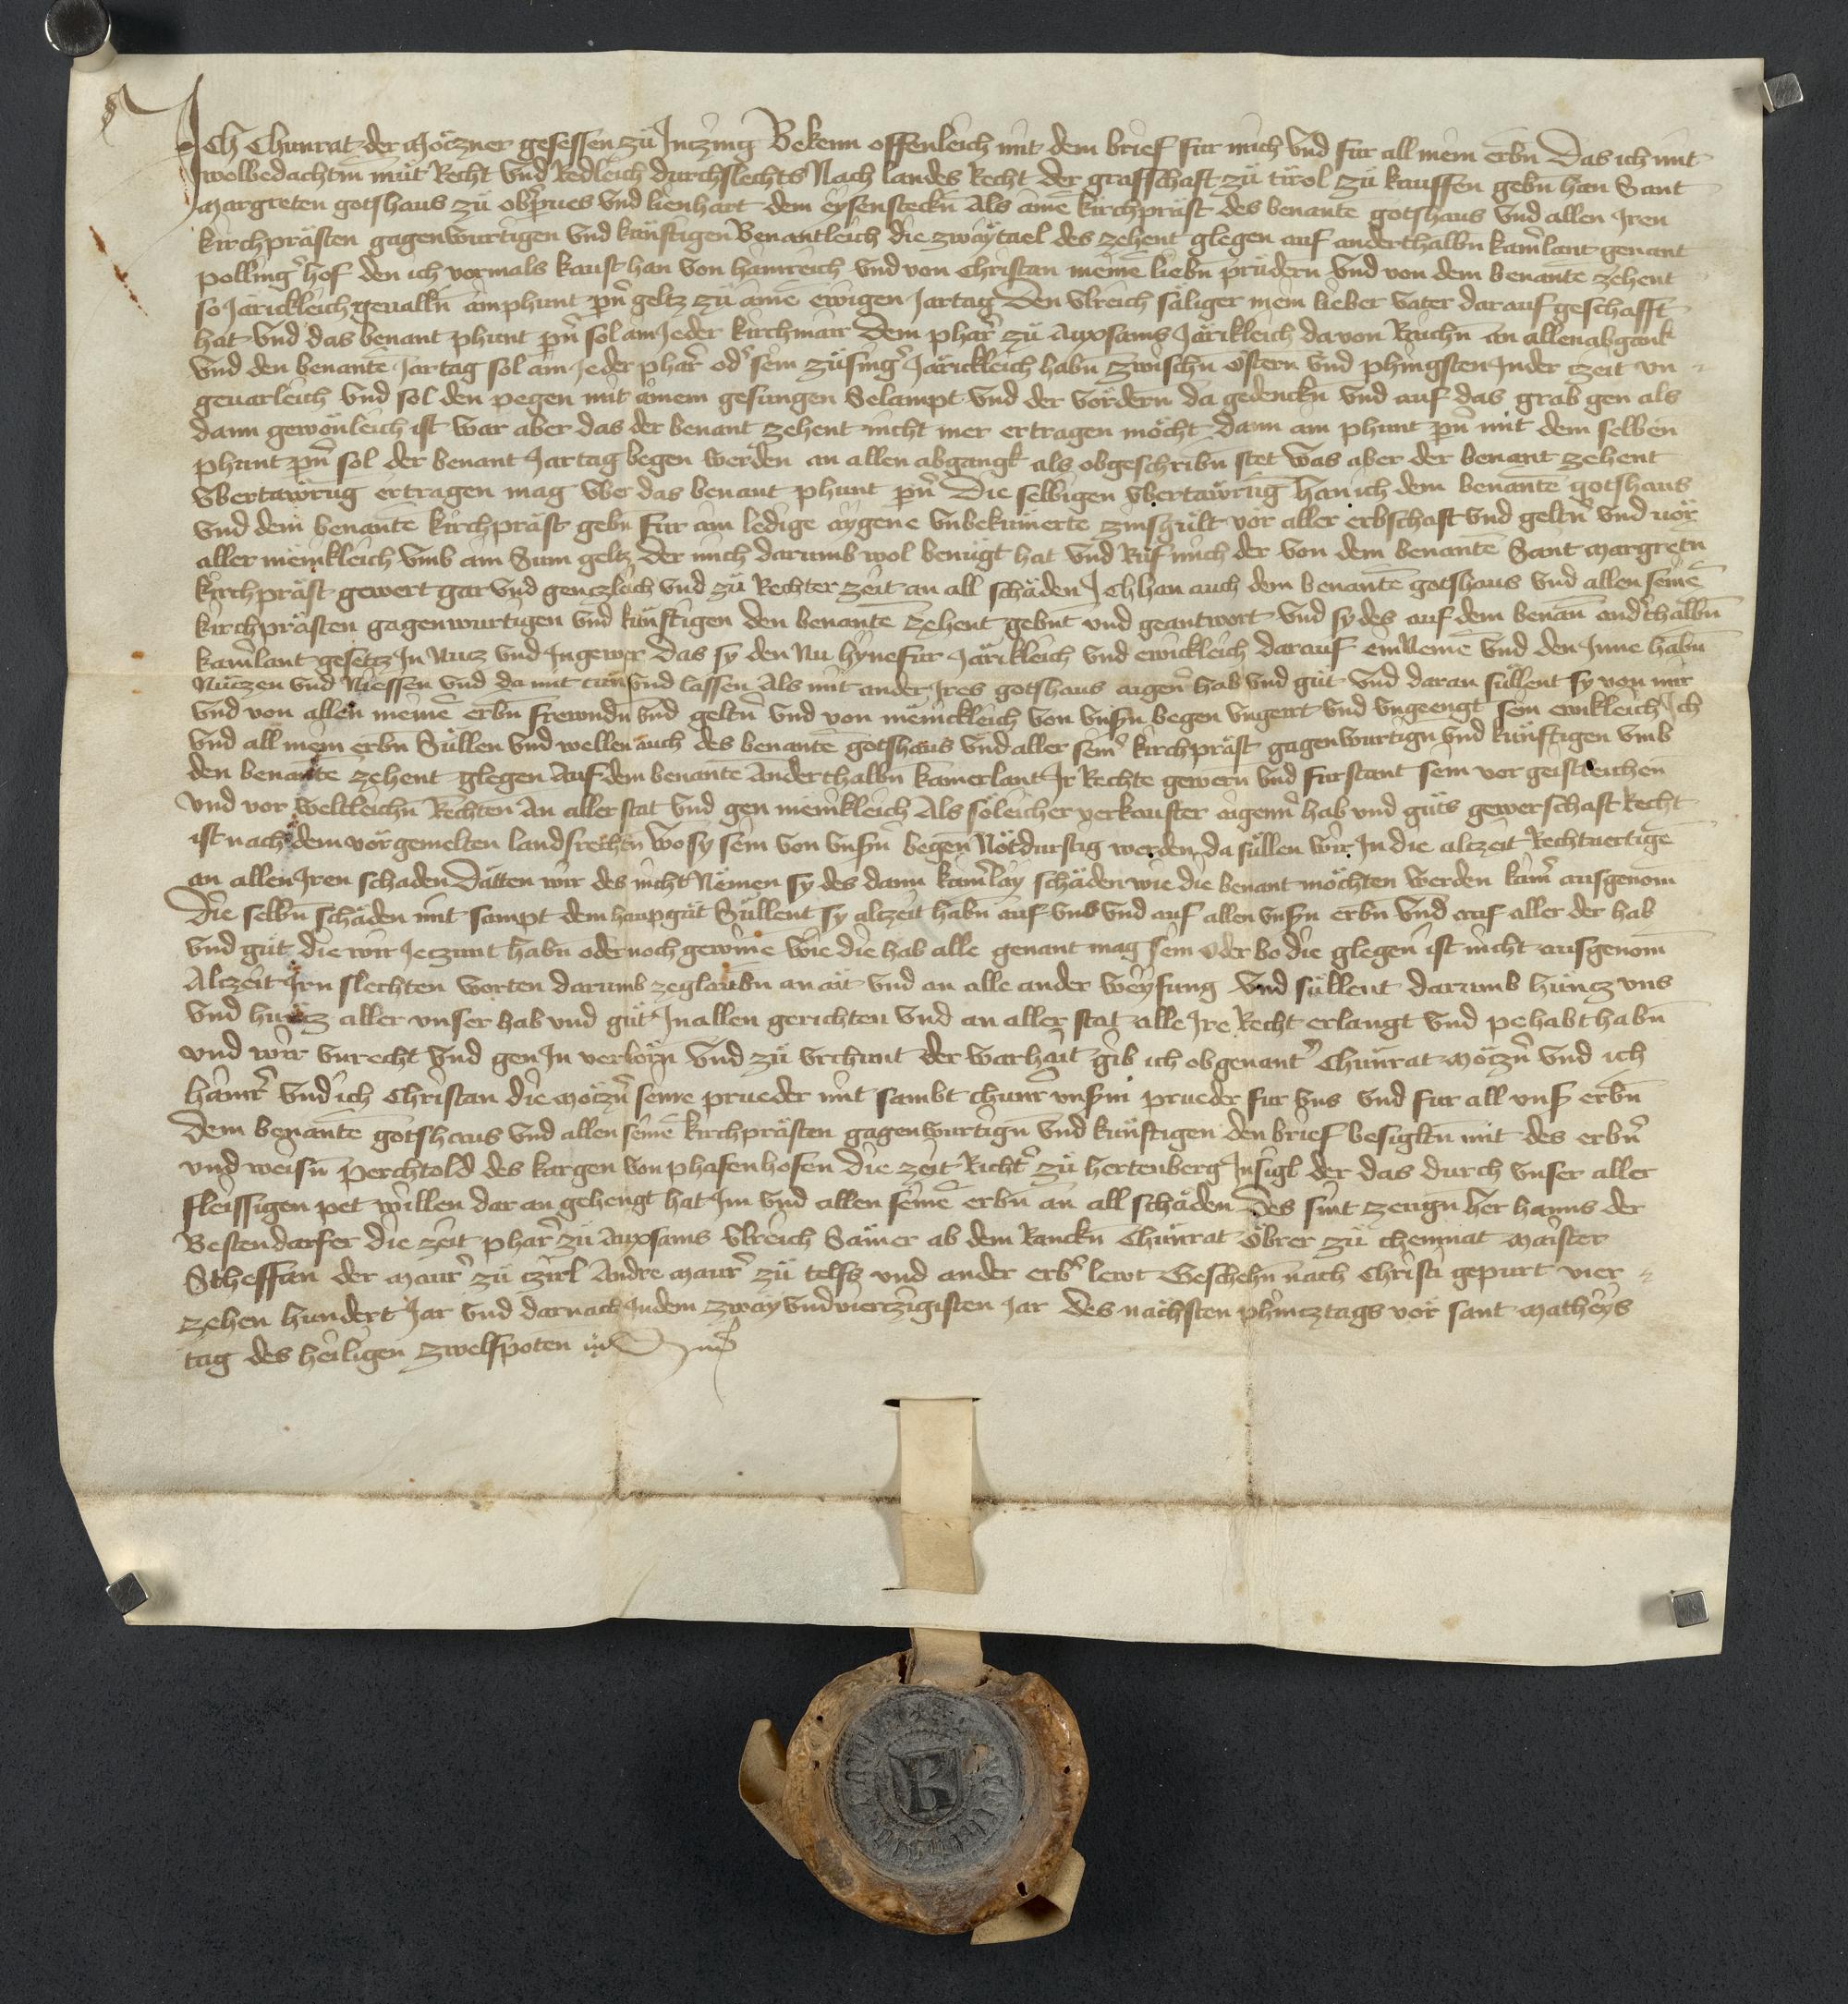 Ich Chunrat der Moͤczner gesessen zu Inczing Bekenn offenleich mit dem brief fur mich vnd fur all mein erbn̄ Das ich mit
wolbedachtm̄ muͤt Recht vnd Redleich durchslechts Nach landes Recht der graffschaft zu tirol zu kauffen gebn̄ han Sant
Margreten gotshaus zu obꝰpirues vnd lienhart dem eysenstecken Als ainē kirchpraͤst des benantē gotshaus vnd allen Iren
kirchpraͤsten gagenwurtigen vnd kunftigen Benantleich die zway tael des zehent glegen auf anderthalbn̄ kamꝰlant genant
pollingꝰ hof den ich vormals kauft han von hainreich vnd von Christan meinē liebn̄ pruͤdern vnd von dem benantē zehent
so Jaͤrickleich geualln̄ ain phunt pn̄ geltz zu ainē ewigen Jartag Den vlreich saͤliger mein lieber vater darauf geschafft
hat vnd das benant phunt pn̄ sol ain Jeder kirchmair Dem pharꝰ zu Auxsams Jaͤrikleich da von Raichn̄ an allen abgank
vnd den benantē Jartag sol ain Jeder pharꝰ odꝰ sein zuͤsingꝰ Jaͤrickleich habn̄ zwischn̄ ostern vnd phingsten In der zeit vn
geuarleich vnd sol den pegen mit ainem gesungen Selampt vnd der vordern da gedenckn̄ vnd auf das grab gen als
dann gewoͤnleich ist war aber das der benant zehent nicht mer ertragen moͤcht dann ain phunt pn̄ mit dem selben
phunt pn̄ sol der benant Jartag begen werden an allen abgangk als obgeschribn̄ stet was aber der benant zehent
vbertawrūg ertragen mag vber das benant phunt pn̄ Die selbigen vbertawrūg han ich dem benantē gotshaus
vnd dem benantē kirchpraͤst gebn̄ fur ain ledige aygene vnbekumerte zinsgult vor aller erbschaft vnd geltnꝰ vnd uor
aller meinkleich vmb ain Sum geltz der mich darumb wol benuͤgt hat vnd Ruͤf mich der von dem benantē Sant Margretn
kirchpraͤst gewert gar vnd genczleich vnd zu Rechter zeit an all schaͤden Ich han auch dem benantē gotshaus vnd allen seinē
kirchpraͤsten gagenwurtigen vnd kunftigen den benantē zehent gebn̄t vnd geantwort vnd sy des auf dem benan̄ andꝰthalbn̄
kamꝰlant gesetz In Nucz vnd In gewer Das sy den Nu hynefur Jaͤrikleich vnd ewickleich darauf ein Nemē vnd den Inne habn̄
Nuczen vnd Niessen vnd da mit tun vnd lassen Als mit ander Ires gotshaus aigenꝰ hab vnd guͤt vnd daran sullent sy von mir
vnd von allen meinē erbn̄ frewndn̄ vnd geltnꝰ vnd von meinickleich von vnsꝰn begen vngeirt vnd vngeengt sein ewikleich Ich
vnd all mein erbn̄ Sullen vnd wellen auch des benantē gotshaus vnd aller seinꝰ kirchpraͤst gagenwurtign̄ vnd kunftigen vmb
den benantē zehent glegen Auf dem benantē Anderthalbn̄ kamerlant Ir Rechte gewern vnd furstant sein vor geistleichen
vnd vor weltleichn̄ Rechten An aller stat vnd gen meinkleich Als soleicher verkaufter aigennꝰ hab vnd guͤts gewerschaft Recht
ist nach dem vorgemelten landsrechtn̄ wo sy sein von vnsꝰn begen Notdurftig werden da sullen wir In die alczeit Rechtuertigē
an allen Iren schaden Daͤtten wir des nicht Nemen sy des dann kainꝰlay schaͤden wie die benant moͤchten werden kainꝰ ausgenom̄
Die selbn̄ schaͤden mit sampt dem haupguͤt Sullent sy alczeit habn̄ auf vns vnd auf allen vnsꝰn erbn̄ vnd auf aller der hab
vnd guͤt die wir Jeczunt habn̄ oder noch gewinē wie die hab alle genant mag sein oder bo die glegen ist nicht ausgenom̄
Alczeit Irn slechten worten darumb zeglaubn̄ an ait vnd an alle ander weysung vnd sullent darumb huncz vns
vnd huncz aller vnser hab vnd guͤt In allen gerichten vnd an aller stat alle Ire Recht erlangt vnd pehabt habn̄
vnd wir vnrecht vnd gen In verlorn̄ vnd zu vrchunt der warhait gib ich obgenantꝰ Chunrat Motznꝰ vnd ich
hainrꝰ vnd ich Christan die Motznꝰ seine prueder mit sambt chunr̄ vnsꝰm prueder fur vns vnd fur all vnsꝰ erbn̄
Dem benantē gotshaus vnd allen seinē kirchpraͤsten gagenwurtign̄ vnd kunftigen den brief besigltn̄ mit des erbnꝰ
vnd weisn̄ Perchtold des kargen von phafenhofen Die zeit Richtꝰ zu hertenberg Insigl der das durch vnser aller
fleissigen pet willen dar an gehengt hat Im vnd allen seinē erbn̄ an all schaͤden Des sint zeugn̄ her hanns der
Bestendarfer die zeit pharꝰ zu Auxsams vlreich Saͤmer ab dem Ranckn̄ Chunrat obrer zu chemnat Maister
Stheffan der Maurꝰ zu czirl Andre Maurꝰ zu telfs vnd ander erbꝰ lewt Geschehn̄ nach Christi gepurt vier
zehen hundert Jar vnd darnach In dem zway vnd vierczigisten Jar des naͤchsten phincztags vor sant Matheys
tag des heiligen zwelfpoten